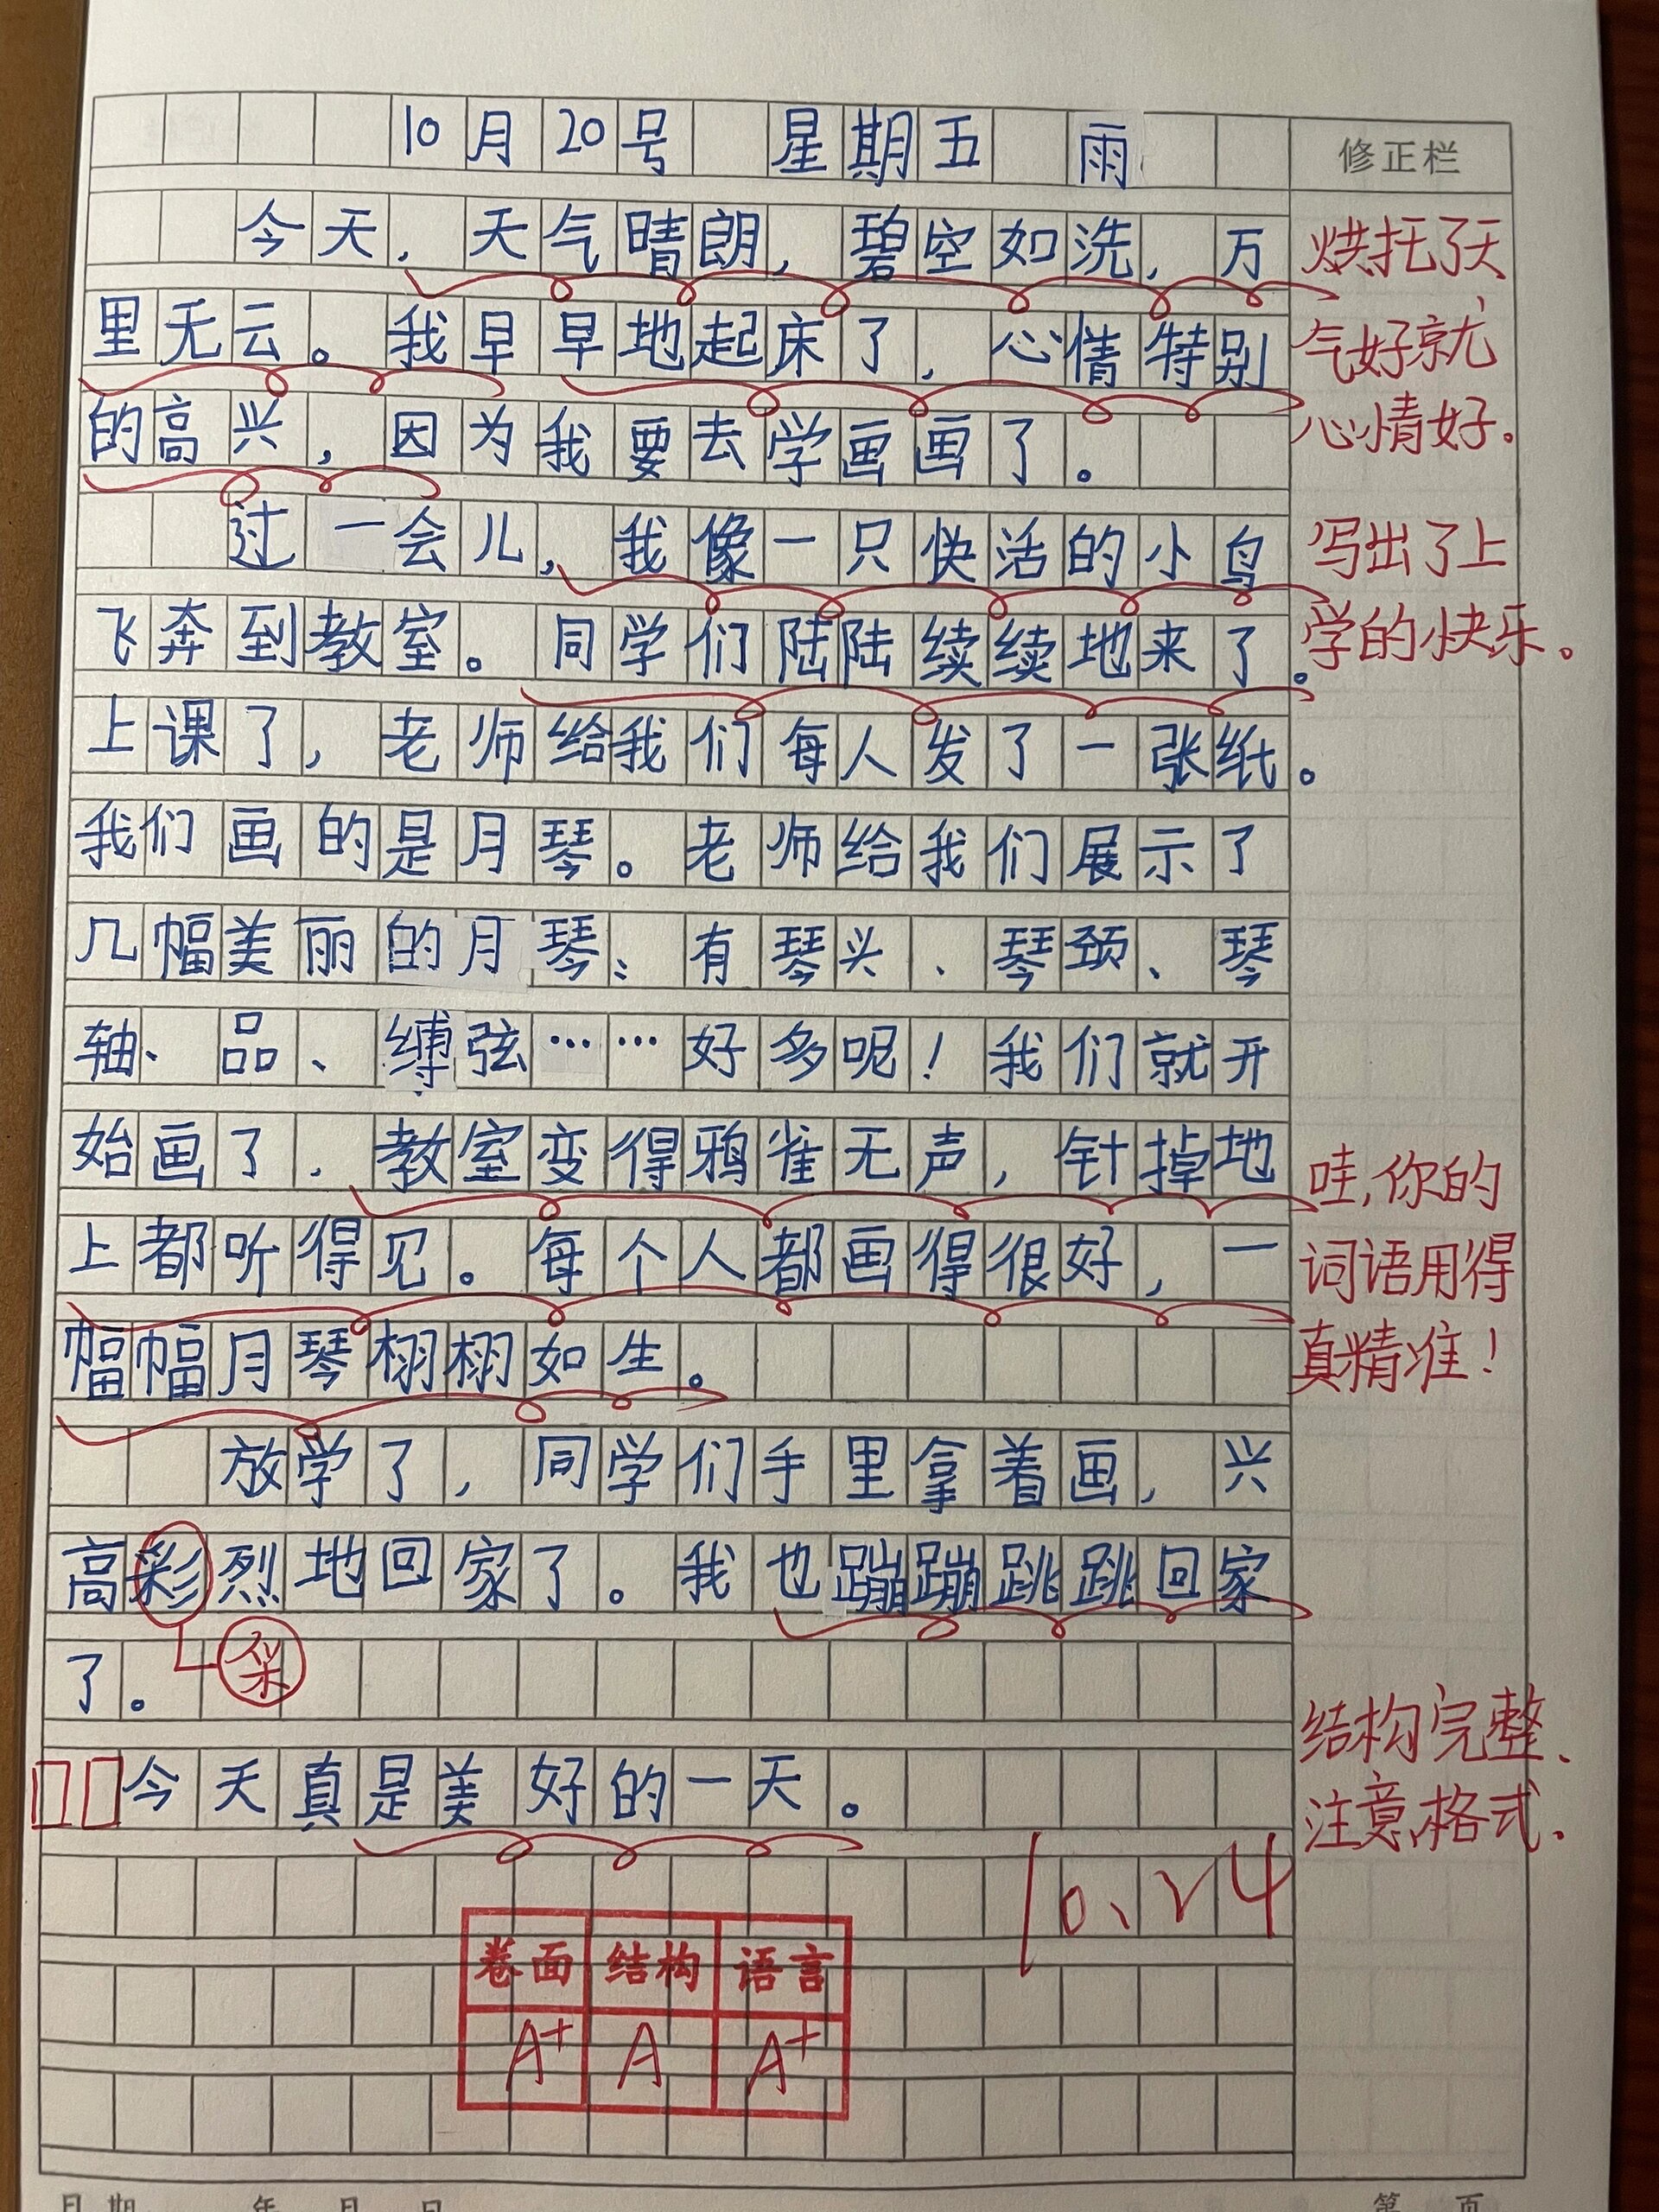 10月20号 星期五 雨
修正栏
今天，天气晴朗，碧空如洗，万
里无云。我早早地起床了，心情特别
的高兴，因为我要去学画画了。
过一会儿，我像一只快活的小鸟
飞奔到教室。同学们陆陆续续地来了。
上课了，老师给我们每人发了一张纸。
我们画的是月琴。老师给我们展示了
几幅美丽的月琴：有琴头、琴颈、琴
轴、品、缚弦……好多呢！我们就开
始画了，教室变得鸦雀无声，针掉地
上都听得见。每个人都画得很好，一
幅幅月琴栩栩如生。
放学了，同学们手里拿着画，兴
高彩烈地回家了。我也蹦蹦跳跳回家
了。
采
今天真是美好的一天。
烘托了天
气好就
心情好.
写出了上
学的快乐。
哇,你的
词语用得
真精准！
结构完整、
注意格式.
10、24
卷面 结构 语言
A+ A A+
日期 年 月 日
第 页